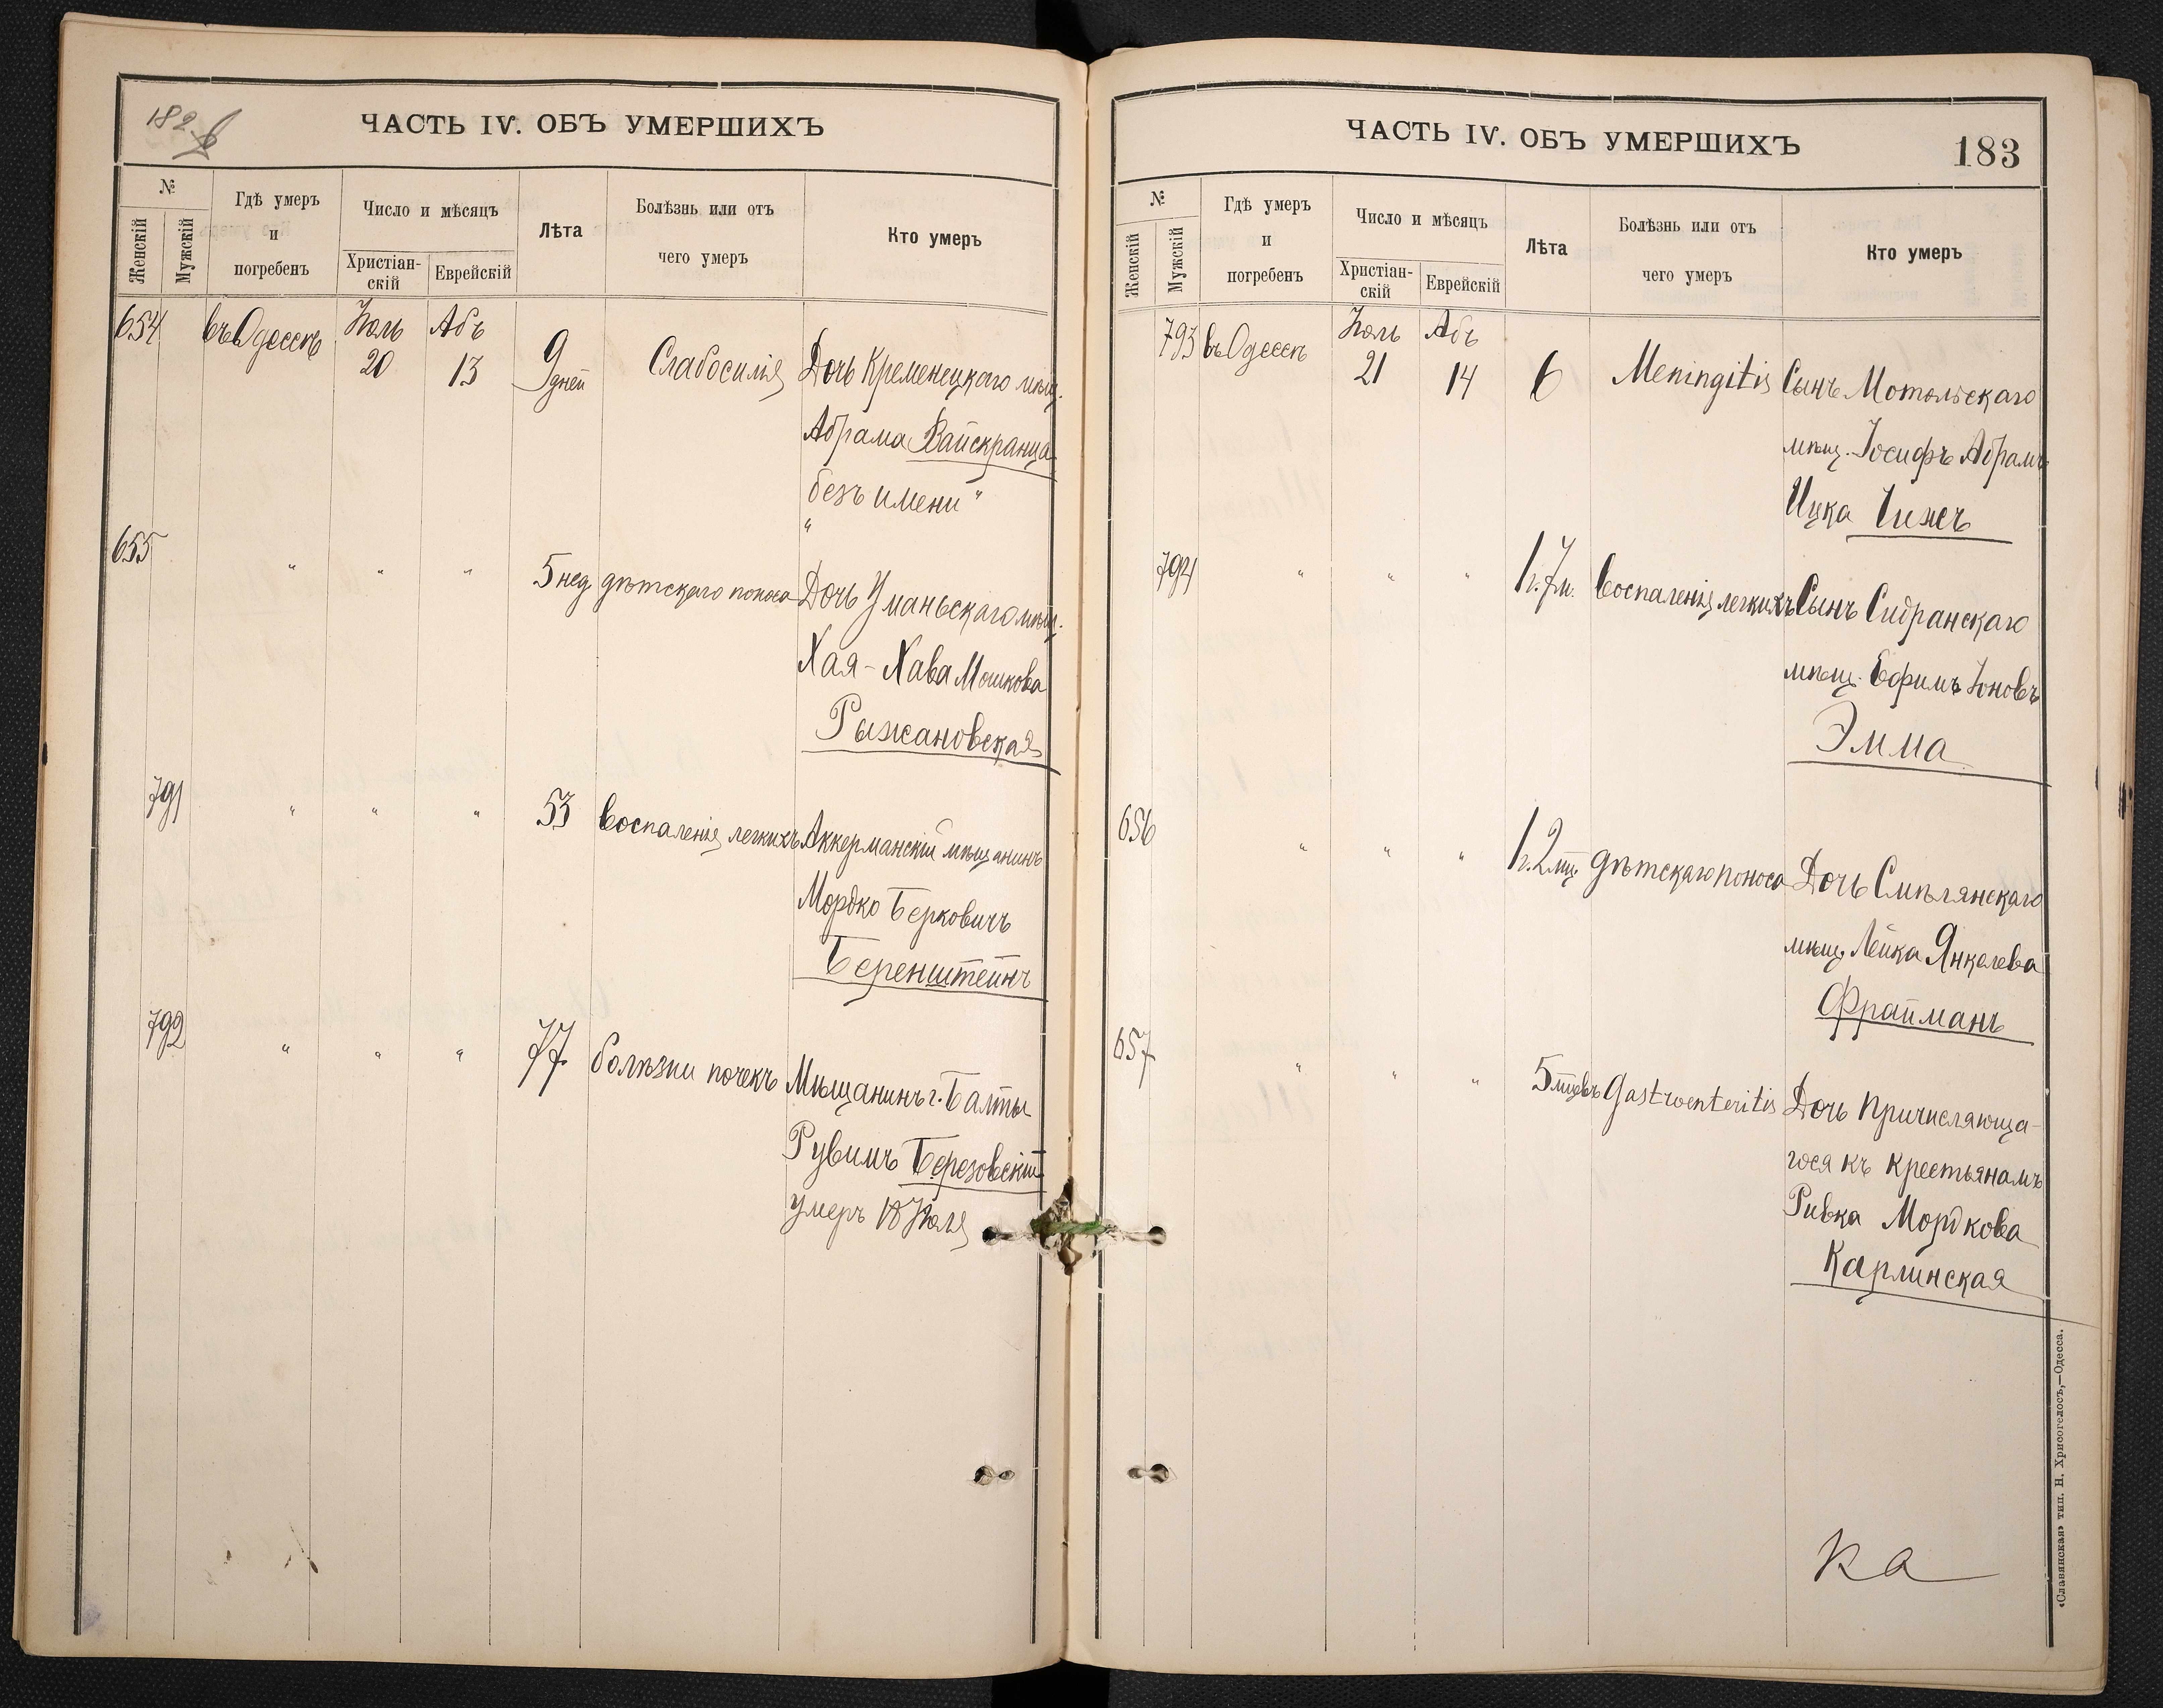 182
ЧАСТЬ IV. ОБЪ УМЕРШИХЪ
№
Женскій
Мужскій
Гдѣ умеръ
и
погребенъ
Число и мѣсяцъ
Христіан-
скій
Еврейскій
Лѣта
Болѣзнь или отъ
чего умеръ
Кто умеръ
654 въ Одессѣ Іюль Абъ
20 13 9 дней Слабосилія Дочь Кременецкого мѣщ.
Абрама Вайскранца
безъ имени "
"
655 " " " 5 нед дѣтскаго поноса Дочь Уманьскаго мѣщ.
Хая-Хава Мошкова
Рыжановская
791 " " " 53 Воспаленія легкихъ Аккерманскій мѣщанинъ
Мордко Берковичъ
Беренштейнъ
792 " " " 77 болѣзни почекъ Мѣщанинъ г. Балты
Рувимъ Березовскій
умеръ 18 Іюля
ЧАСТЬ IV. ОБЪ УМЕРШИХЪ
183
№
Женскій
Мужскій
Гдѣ умеръ
и
погребенъ
Число и мѣсяцъ
Христіан-
скій
Еврейскій
Лѣта
Болѣзнь или отъ
чего умеръ
Кто умеръ
793 въ Одессѣ Іюль Абъ
21 14 6 Meningitis Сынъ Мотольскаго
мѣщ. Іосифъ Абрамъ
Ицка Чижъ
794 " " " 1 г. 7 м. Воспаленія легкихъ Сынъ Сидранскаго
мѣщ. Ефимъ Юновъ
Эмма
656 " " " 1 г. 2 мц. дѣтскаго поноса Дочь Смѣлянскаго
мѣщ. Лейка Янкелева
Фрайманъ
657 " " " 5 мцевъ Gastroenteritis Дочь причисляюща-
гося къ крестьянамъ
Ривка Мордкова
Карлинская
ка
«Славянская» тип. Н. Хрисогелосъ,—Одесса.